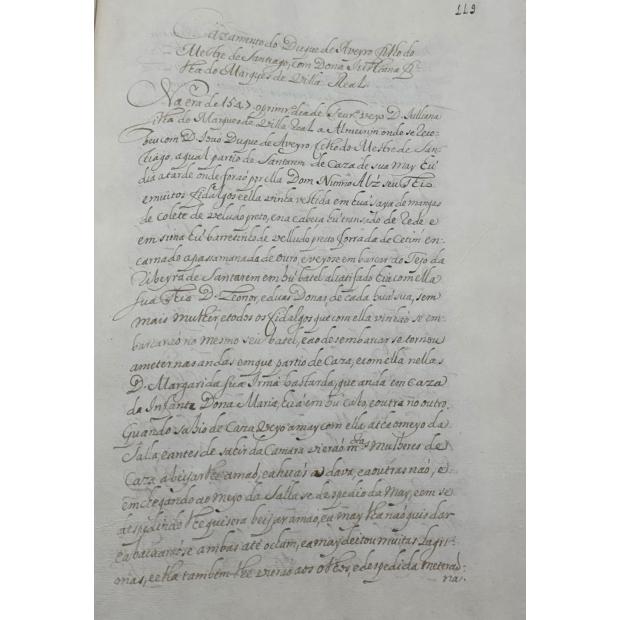 119
Cazamento do Duque de Aveyro filho do
Mestre de Santiago, com Dona Julliana fi-
lha do Marques de Villa Real.
Na era de 1547 o primr.º dia de Feur.º veyo D. Julliana
filha do Marques de Villa Real a Almeirim onde se rece-
beu com D. João Duque de Aveyro, filho do Mestre de San-
tiago, a qual partio de Santarem de Caza de sua may hũ
dia a tarde onde forão por ella Dom Nunno Alz' seu Tio
e muitos fidalgos e ella vinha vestida em hũa saya de mangas
de Colete de veludo preto, e na cabeça hũ trensado de Rede e
em sima hũ barretinho de velludo preto forrada de Cetim en-
carnado apassamanada de ouro, e veyose embarcar do Tejo da
Ribeyra de Santarem em hũ batel alcatifado e ia com ella
sua Thia D. Leonor, e duas Donas, de cada hũa sua, sem
mais mulher, e todos os fidalgos que com ella vinhão se em-
barcarão no mesmo seu batel, e ao desembarcar se tornou
a meter nas andas em que partio de Caza, e com ella nellas
D. Margarida sua Irmã bastarda, que anda em Caza
da Infanta Dona Maria, hia em hũ Cabo, e outra no outro.
Quando sahio de Caza veyo a may com ella, athe o meyo da
Salla, e antes de sahir da Camara vierão m.tas mulheres de
Caza a beijar lhe a mão, e a huãs a dava, e a outras não, e
em chegando ao meyo da Salla se despedio da May, e em se
despedindo lhe quisera beijar a mão, e a may lha não quis dar
e abaixarãose ambas até o cham, e a may deitou muitas lagri-
mas, e ella também lhe vierão aos olhos, e despedida
na.